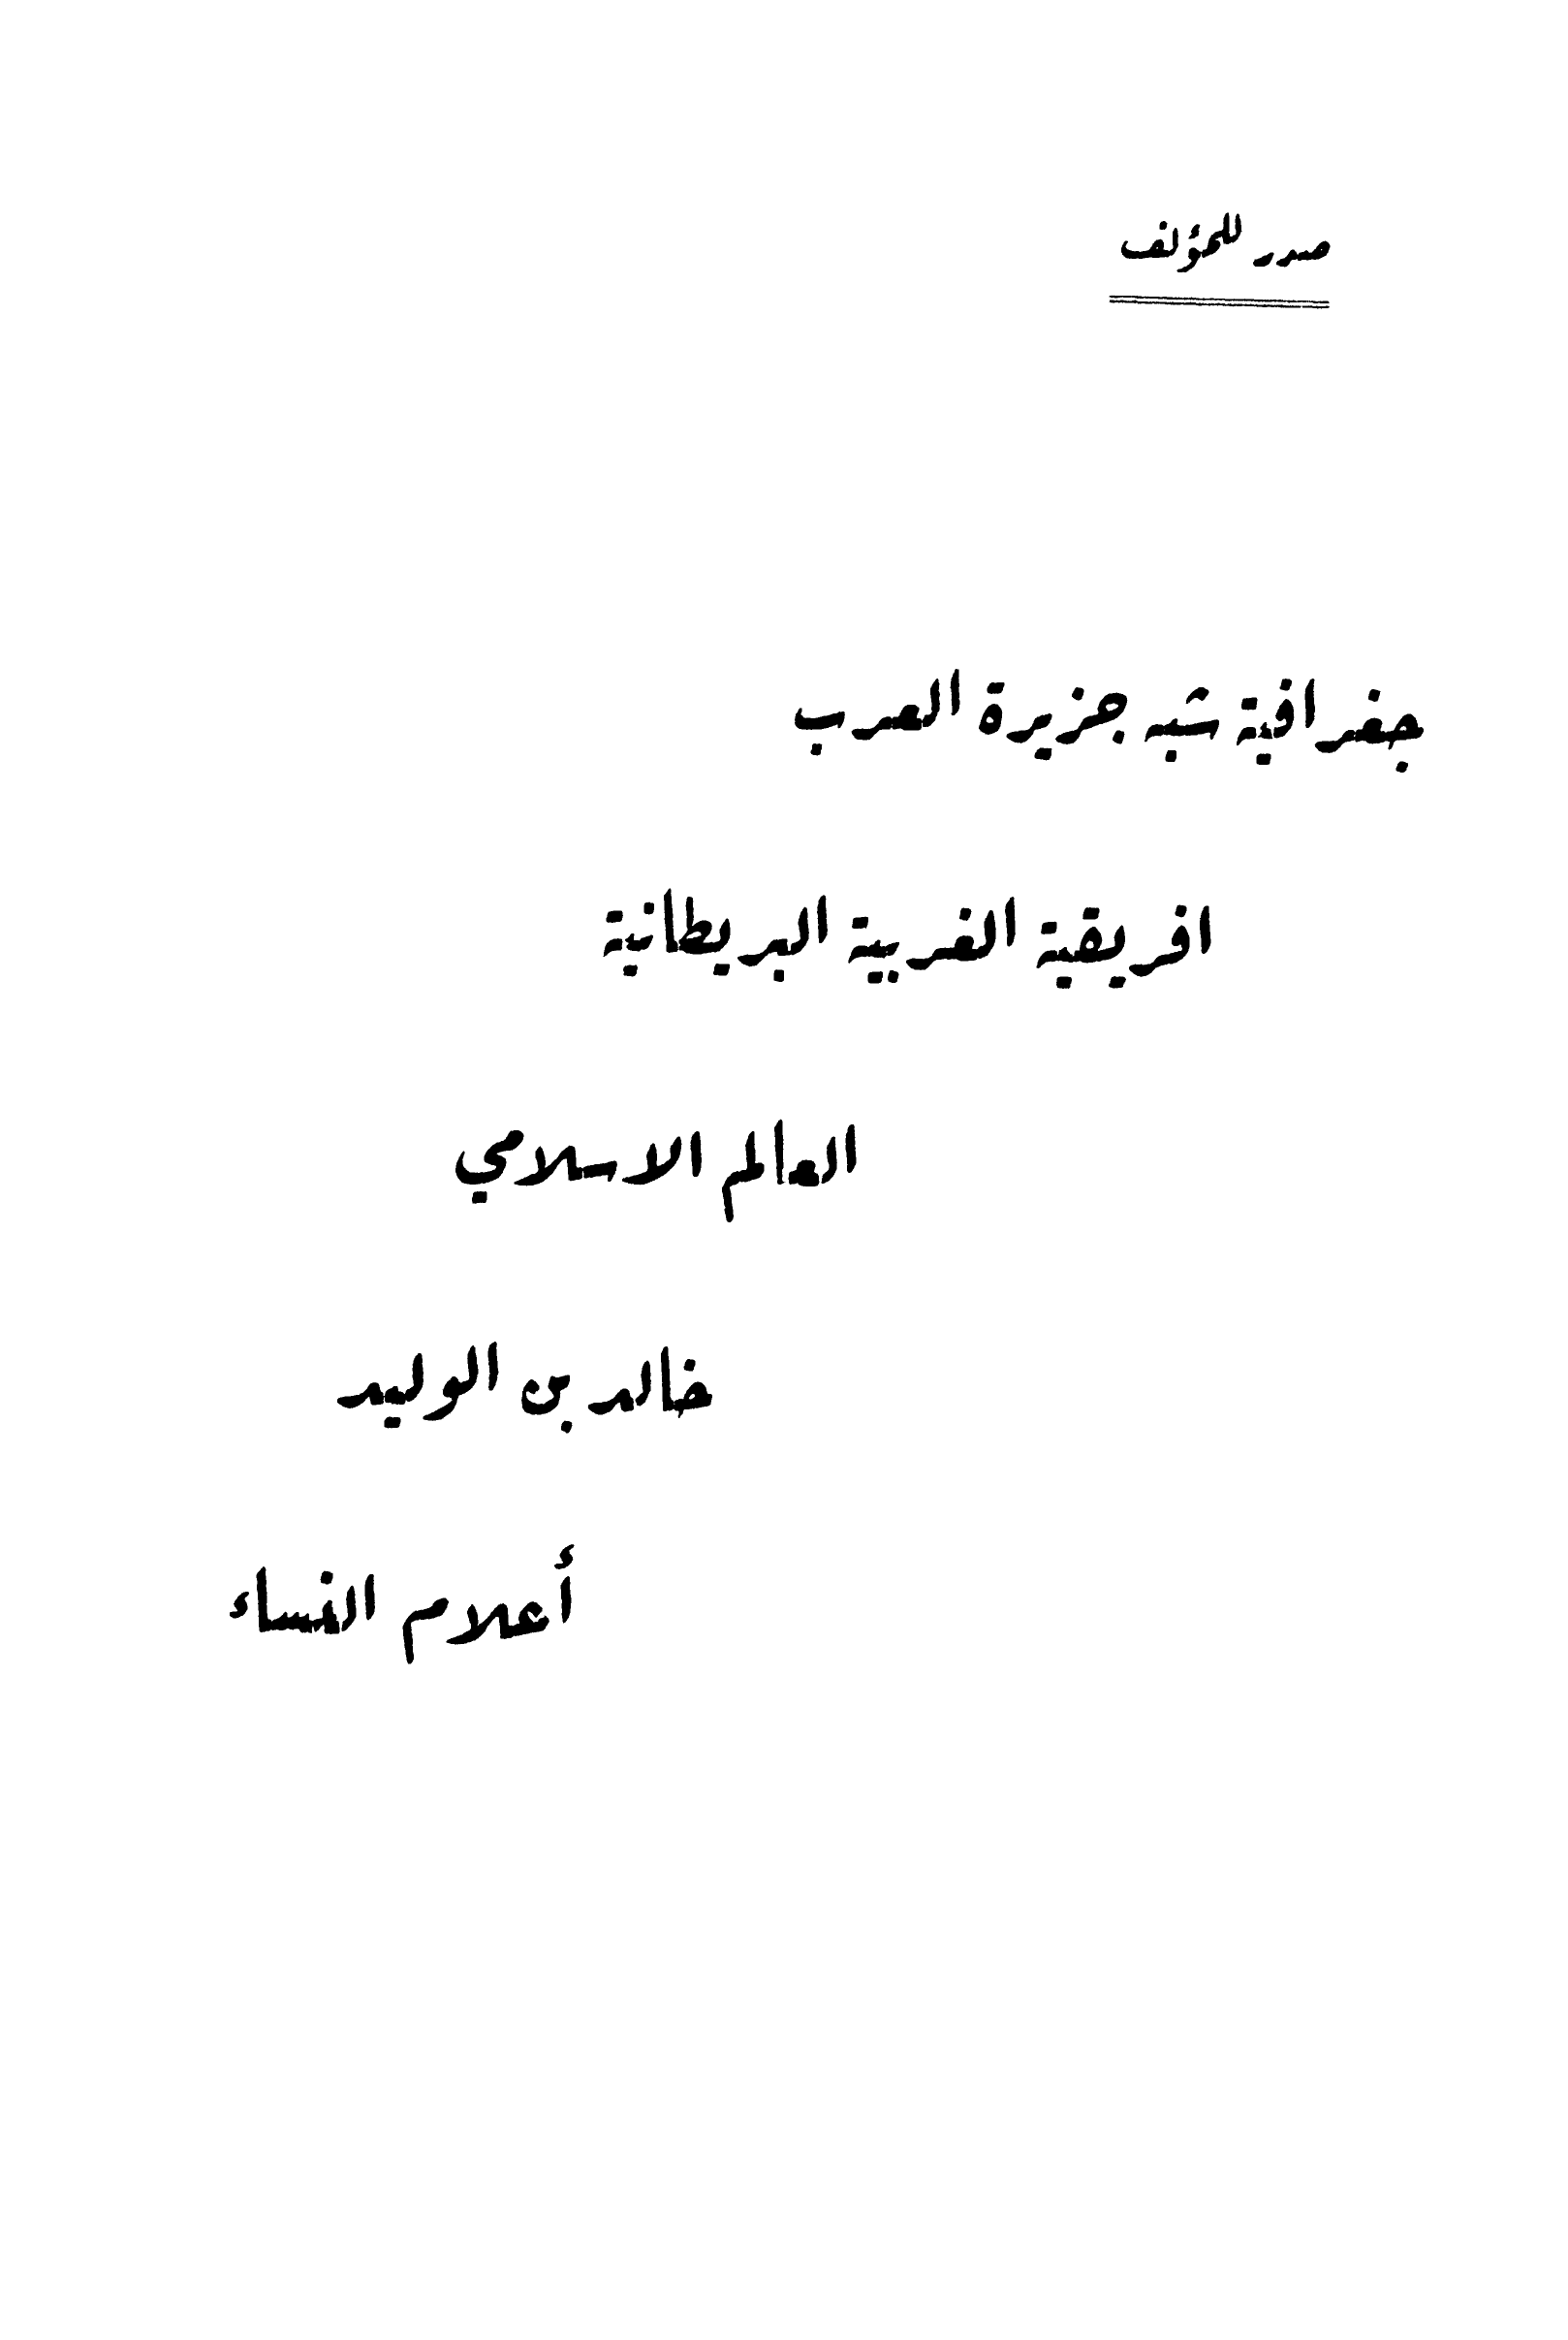 صدر للمؤلف
جغرافية شبه جزيرة العرب
افريقية الغربية البريطانية
العالم الاسلامي
خالد بن الوليد
أعلام النساء